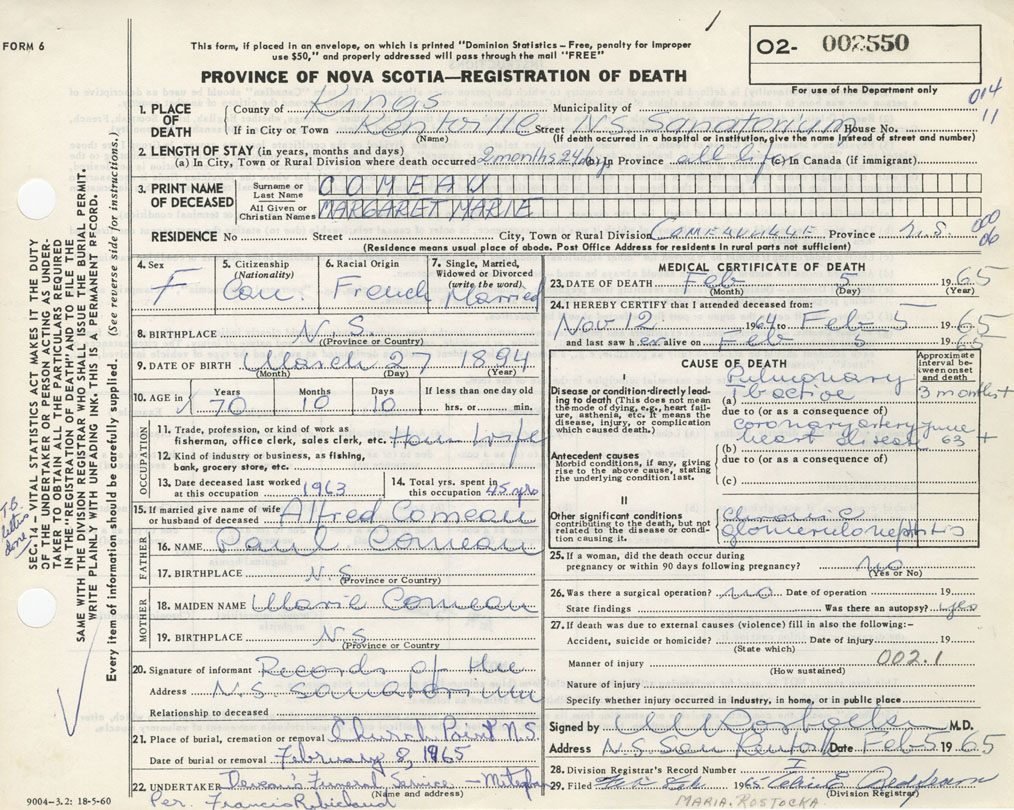 FORM 6
This form, if placed in an envelope, on which is printed "Dominion Statistics – Free, penalty for improper
use $50," and properly addressed will pass through the mail "FREE"
PROVINCE OF NOVA SCOTIA—REGISTRATION OF DEATH
O2- 002550
For use of the Department only
014
11
1. PLACE OF DEATH
County of Kings Municipality of
If in City or Town Kentville Street N.S. Sanatorium House No.
(Name) (If death occurred in a hospital or institution, give the name instead of street and number)
2. LENGTH OF STAY (in years, months and days)
(a) In City, Town or Rural Division where death occurred 2 months 24 days (b) In Province all life (c) In Canada (if immigrant)
3. PRINT NAME OF DECEASED
Surname or Last Name COMEAU
All Given or Christian Names MARGARET MARIE
RESIDENCE No Street City, Town or Rural Division COMEAUVILLE Province N.S.
000
06
(Residence means usual place of abode. Post Office Address for residents in rural parts not sufficient)
4. Sex F
5. Citizenship (Nationality) Can.
6. Racial Origin French
7. Single, Married, Widowed or Divorced (write the word) Married
8. BIRTHPLACE N.S.
(Province or Country)
9. DATE OF BIRTH March 27 1894
(Month) (Day) (Year)
10. AGE in Years 70 Months 10 Days 10 If less than one day old hrs. or min.
OCCUPATION
11. Trade, profession, or kind of work as fisherman, office clerk, sales clerk, etc. House Wife
12. Kind of industry or business, as fishing, bank, grocery store, etc.
13. Date deceased last worked at this occupation 1963
14. Total yrs. spent in this occupation 45 yrs
15. If married give name of wife or husband of deceased Alfred Comeau
FATHER
16. NAME Paul Comeau
17. BIRTHPLACE N.S.
(Province or Country)
MOTHER
18. MAIDEN NAME Marie Comeau
19. BIRTHPLACE N.S.
(Province or Country)
20. Signature of informant Records of the
Address N.S. Sanatorium
Relationship to deceased
21. Place of burial, cremation or removal Church Point N.S.
Date of burial or removal February 8, 1965
22. UNDERTAKER Funeral Service – Meteghan
(Name and address)
Per. Francis Robichaud
9004-3.2: 18-5-60
MEDICAL CERTIFICATE OF DEATH
23. DATE OF DEATH Feb 5 1965
(Month) (Day) (Year)
24. I HEREBY CERTIFY that I attended deceased from:
Nov 12 1964 to Feb 5 1965
and last saw her alive on Feb 5 1965
CAUSE OF DEATH
Approximate interval between onset and death
I
Disease or condition directly leading to death (This does not mean the mode of dying, e.g., heart failure, asthenia, etc. It means the disease, injury, or complication which caused death.)
(a) Pulmonary tb active 3 months+
due to (or as a consequence of)
Antecedent causes
Morbid conditions, if any, giving rise to the above cause, stating the underlying condition last.
(b) coronary artery heart disease 63 +
due to (or as a consequence of)
(c)
II
Other significant conditions
contributing to the death, but not related to the disease or condition causing it.
Chronic glomerulonephritis
25. If a woman, did the death occur during
pregnancy or within 90 days following pregnancy? no
(Yes or No)
26. Was there a surgical operation? no Date of operation 19
State findings Was there an autopsy? yes
27. If death was due to external causes (violence) fill in also the following:–
Accident, suicide or homicide? Date of injury 19
(State which)
Manner of injury 002.1
(How sustained)
Nature of injury
Specify whether injury occurred in industry, in home, or in public place
Signed by M.D.
Address N.S. San Kentville Date Feb 5 1965
28. Division Registrar's Record Number
29. Filed 1965
(Division Registrar)
MARIA. ROSTOCKA
SEC. 14 – VITAL STATISTICS ACT MAKES IT THE DUTY
OF THE UNDERTAKER OR PERSON ACTING AS UNDER-
TAKER TO OBTAIN ALL THE PARTICULARS REQUIRED
IN THE "REGISTRATION OF DEATH" AND TO FILE THE
SAME WITH THE DIVISION REGISTRAR WHO SHALL ISSUE THE BURIAL PERMIT.
WRITE PLAINLY WITH UNFADING INK. THIS IS A PERMANENT RECORD.
Every item of information should be carefully supplied. (See reverse side for instructions.)
T.B.